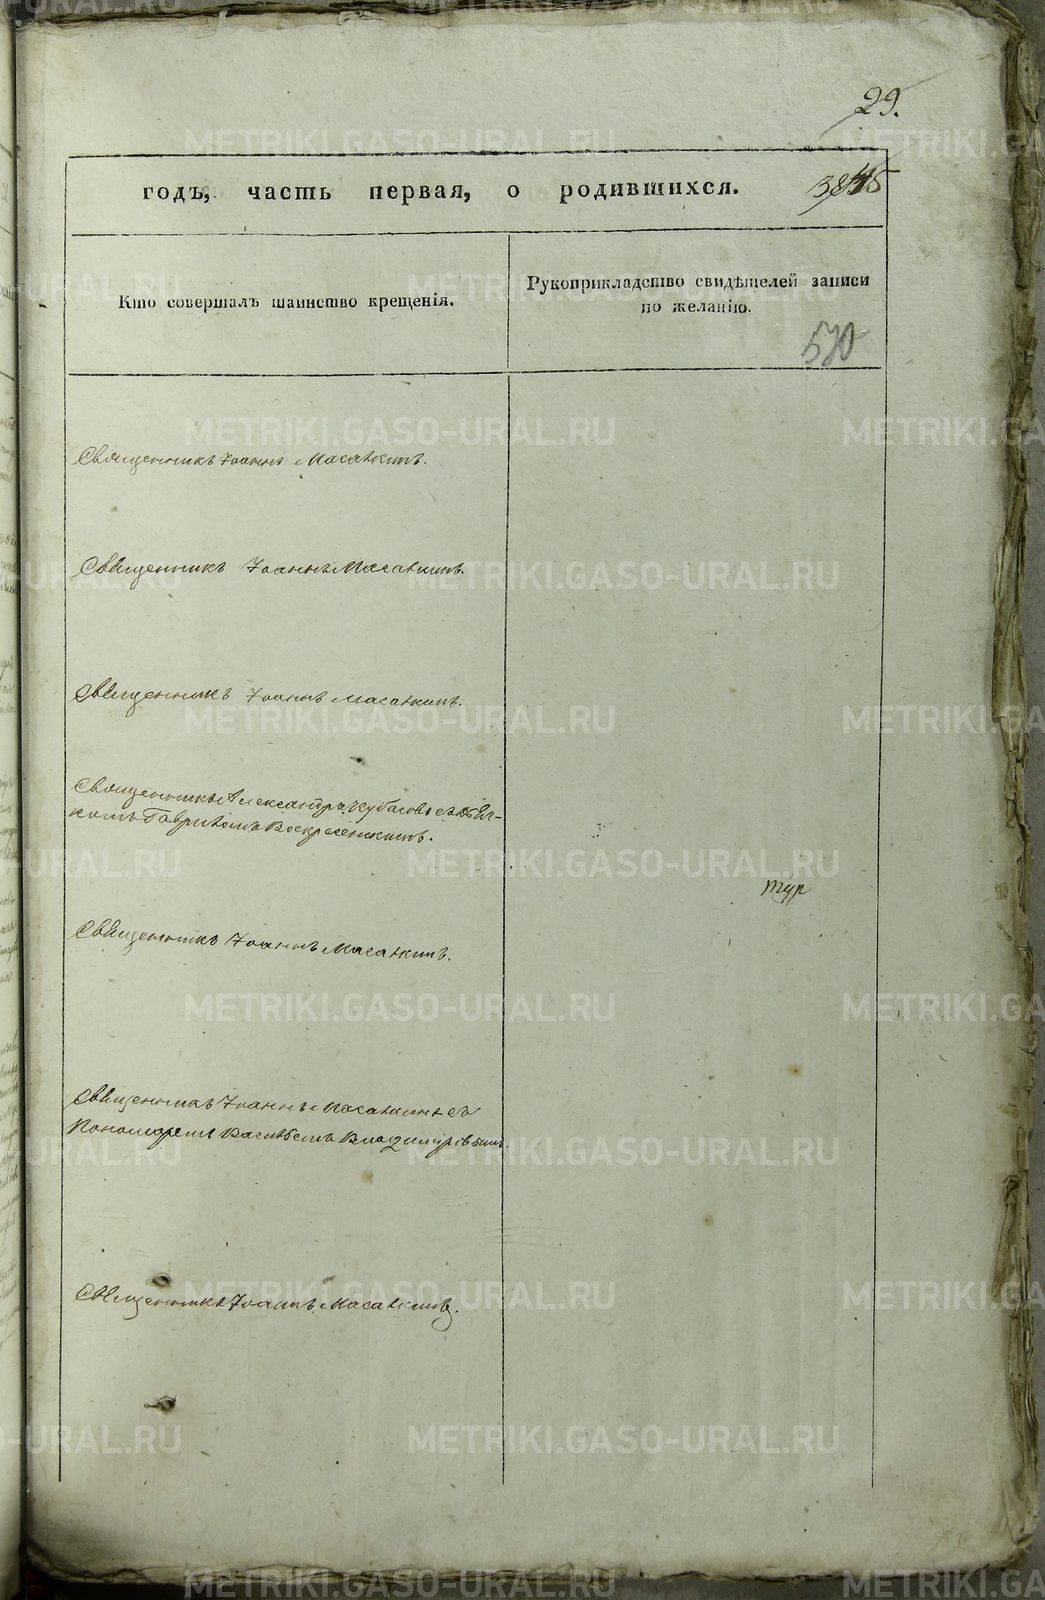 29.
годъ, часть первая, о родившихся.
Кто совершалъ таинство крещенія.
Рукоприкладство свидѣтелей записи
по желанію.
570
Священникъ Іоаннъ Масалкинъ.
Священникъ Іоаннъ Масалкинъ.
Священникъ Іоаннъ Масалкинъ.
Священникъ Александръ Кубасовъ съ дья-
комъ Гавриломъ Воскресенскимъ.
тур
Священникъ Іоаннъ Масалкинъ.
Священникъ Іоаннъ Масалкинъ съ
Пономаремъ Василіемъ
Священникъ Іоаннъ Масалкинъ.
METRIKI.GASO-URAL.RU